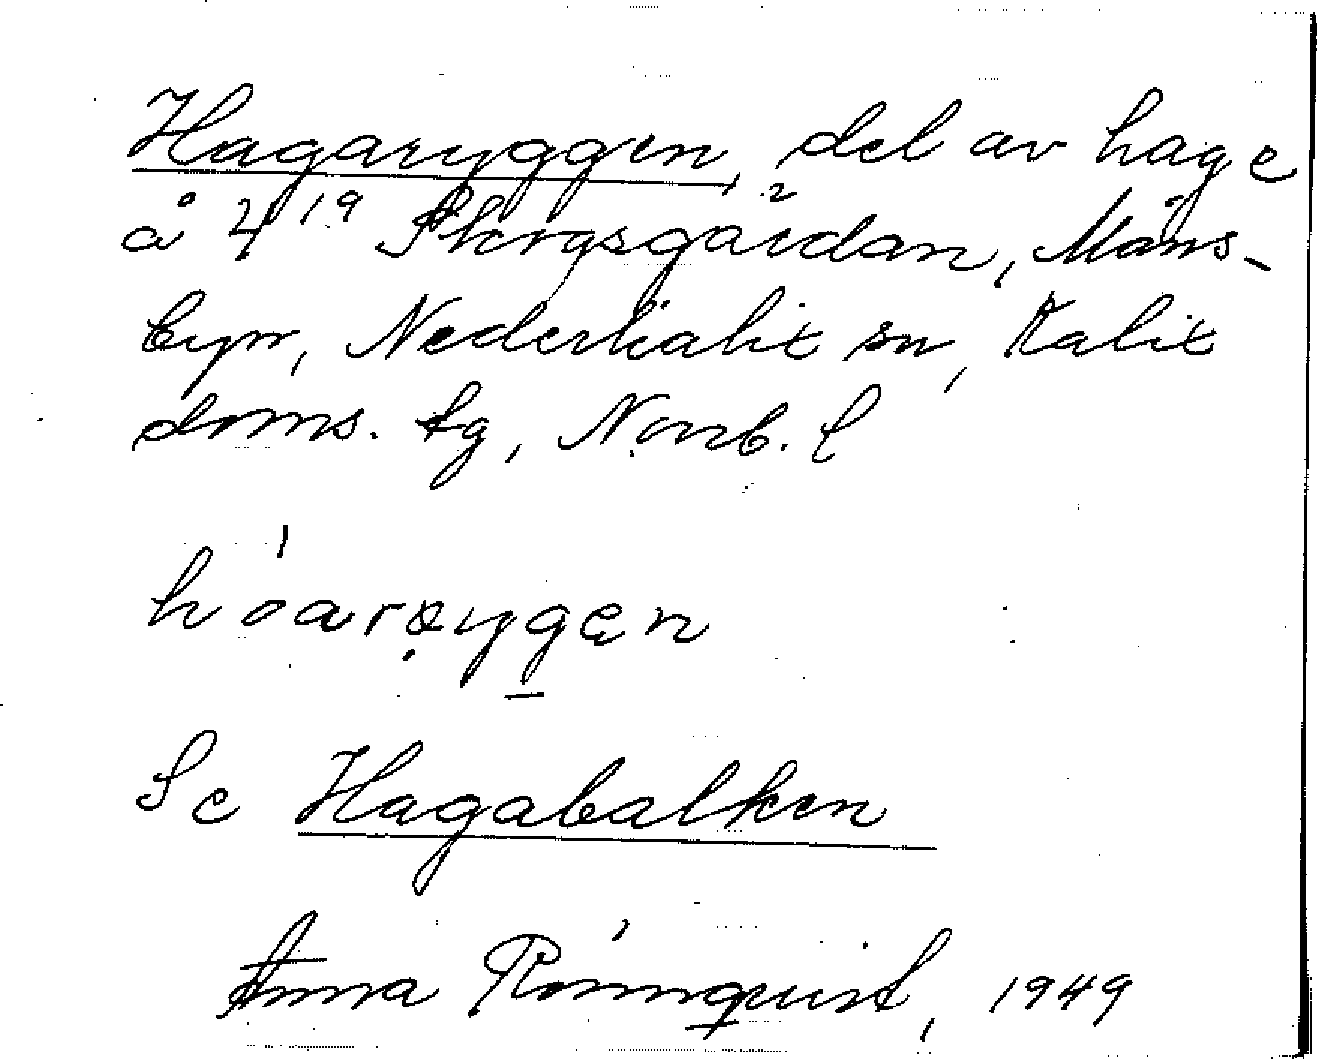 Hagaryggen, del av hage
å 4¹⁹ Skogsgärdan, Måns-
byn, Nederkalix sn, Kalix
doms. tg, Norrb. l
Se Hagabalken
Anna Rönnquist, 1949